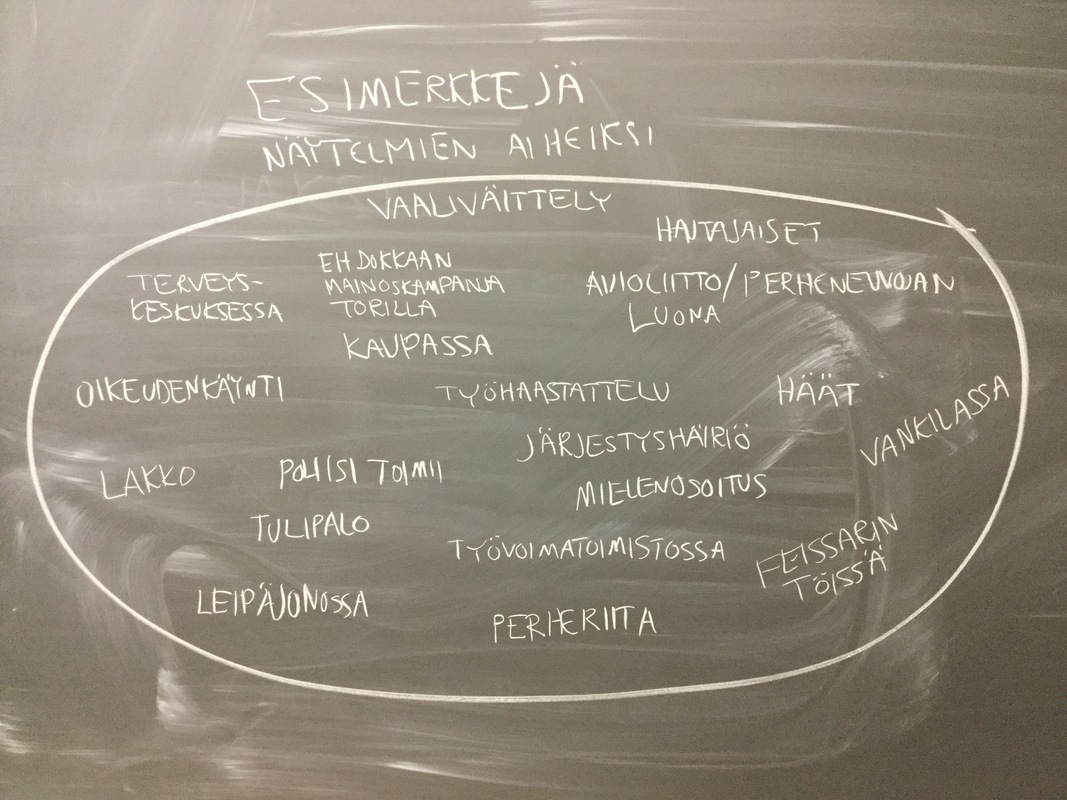 ESIMERKKEJÄ
NÄYTELMIEN AIHEIKSI
VAALIVÄITTELY
HAUTAJAISET
EHDOKKAAN
MAINOSKAMPANJA
TORILLA
TERVEYS-
KESKUKSESSA
AVIOLIITTO/PERHENEUVOJAN
LUONA
KAUPASSA
OIKEUDENKÄYNTI
TYÖHAASTATTELU
HÄÄT
VANKILASSA
JÄRJESTYSHÄIRIÖ
LAKKO
POLIISI TOIMII
MIELENOSOITUS
TULIPALO
TYÖVOIMATOIMISTOSSA
FEISSARIN
TÖISSÄ
LEIPÄJONOSSA
PERHERIITA